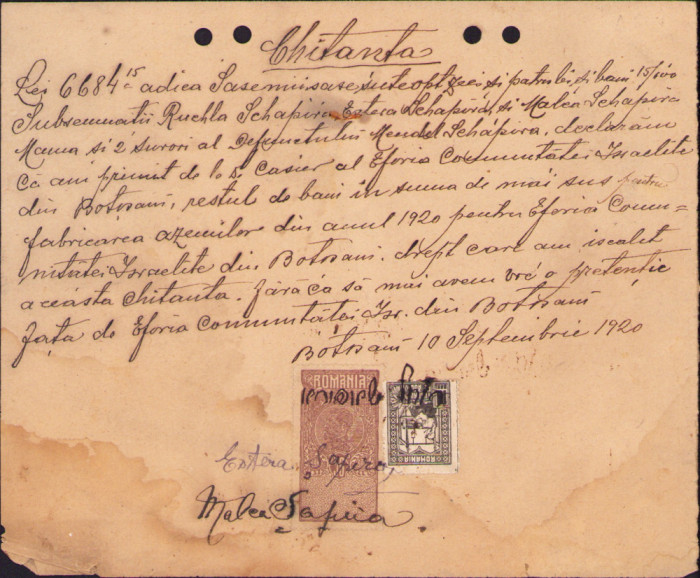 Chitanta
Lei 6684 15 adica Sasemiisase sute opt zeci si patru lei, si bani 15/000
Subsemnatii Ruchla Schapira, Estera Schapira, si Malca Schapira
Mama si 2 surori al Defunctului Mendel Schapira, declarăm
Că am primit de la D. Casier al Eforia Comunitatei Israelite
din Botosani, restul de bani in suma de mai sus pentru
fabricarea azemilor din anul 1920 pentru Eforia Comu=
nitatei Israelite din Botosani. drept care am iscalit
aceasta Chitanta. Fără ca să mai avem vre o pretenție
față de Eforia Comunitatei Isr. din Botosani
Botosani 10 Septembrie 1920
ROMANIA
ROMANIA
Estera Sapira
Malca Sapira